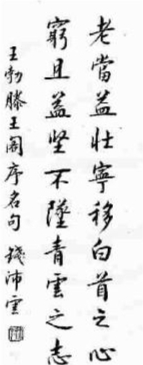 老當益壯寧移白首之心
窮且益坚不墜青雲之志
王勃滕王阁序名句 錢沛雲